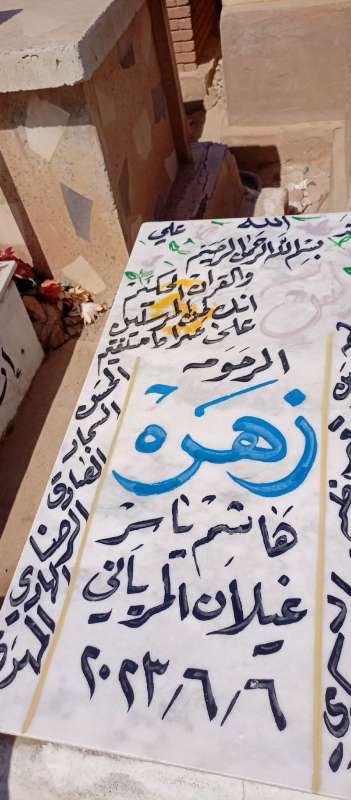 الله علي
بسم الله الرحمن الرحيم
يس
والقران الحكيم
انك لمن المرسلين
على صراط مستقيم
المرحومه
زهره
هاشم ياسر
غيلان المرياني
٢٠٢٣/٦/٦
الحسن
السجاد
الصادق
الرضا
الهادي
المهدي